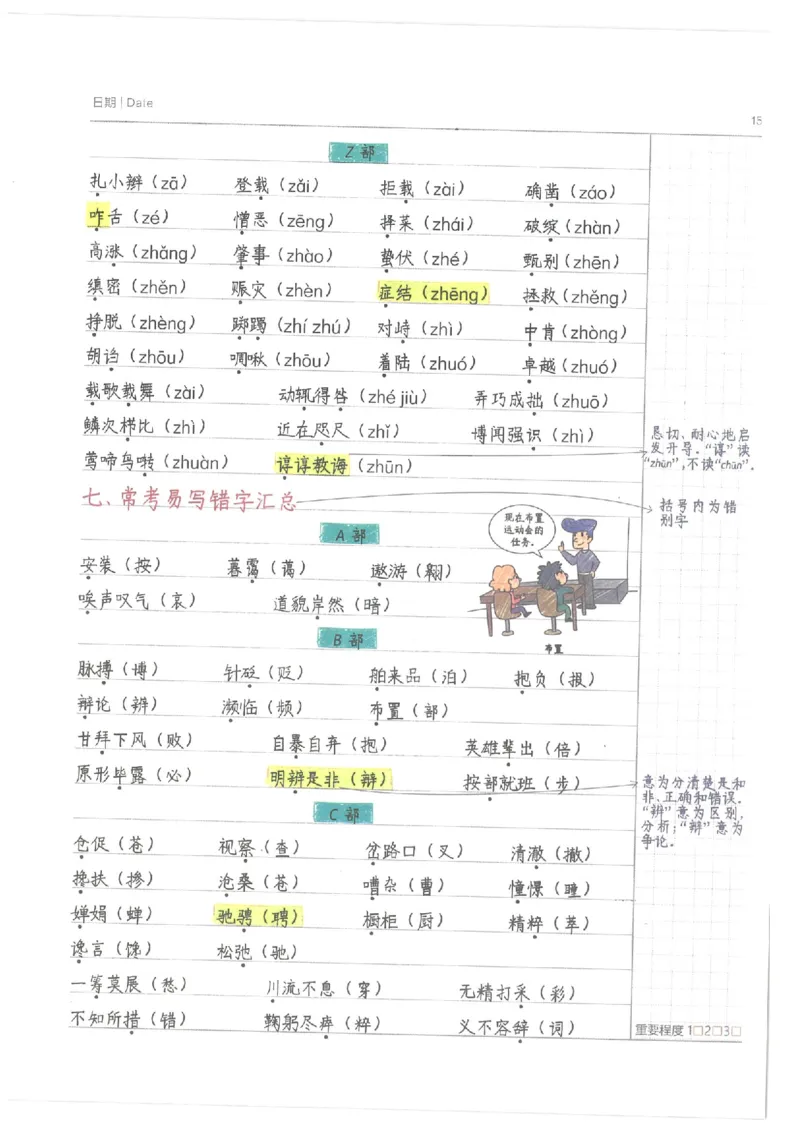 日期 | Date
15
Z 部
扎小辫（zā） 登载（zǎi） 拒载（zài） 确凿（záo）
咋舌（zé） 憎恶（zēng） 择菜（zhái） 破绽（zhàn）
高涨（zhǎng） 肇事（zhào） 蛰伏（zhé） 甄别（zhēn）
缜密（zhěn） 赈灾（zhèn） 症结（zhēng） 拯救（zhěng）
挣脱（zhèng） 踯躅（zhí zhú） 对峙（zhì） 中肯（zhòng）
胡诌（zhōu） 啁啾（zhōu） 着陆（zhuó） 卓越（zhuó）
载歌载舞（zài） 动辄得咎（zhé jiù） 弄巧成拙（zhuō）
鳞次栉比（zhì） 近在咫尺（zhǐ） 博闻强识（zhì）
莺啼鸟啭（zhuàn） 谆谆教诲（zhūn）
恳切、耐心地启
发开导。“谆”读
“zhūn”，不读“chūn”.
七、常考易写错字汇总
括号内为错
别字
A 部
现在布置
运动会的
任务.
布置
安装（按） 暮霭（蔼） 遨游（翱）
唉声叹气（哀） 道貌岸然（暗）
B 部
脉搏（博） 针砭（贬） 舶来品（泊） 抱负（报）
辩论（辨） 濒临（频） 布置（部）
甘拜下风（败） 自暴自弃（抱） 英雄辈出（倍）
原形毕露（必） 明辨是非（辩） 按部就班（步）
意为分清楚是和
非、正确和错误.
“辨”意为区别,
分析；“辩”意为
争论.
C 部
仓促（苍） 视察（查） 岔路口（叉） 清澈（撤）
搀扶（掺） 沧桑（苍） 嘈杂（曹） 憧憬（瞳）
婵娟（蝉） 驰骋（聘） 橱柜（厨） 精粹（萃）
谗言（馋） 松弛（驰）
一筹莫展（愁） 川流不息（穿） 无精打采（彩）
不知所措（错） 鞠躬尽瘁（粹） 义不容辞（词）
重要程度 1□2□3□